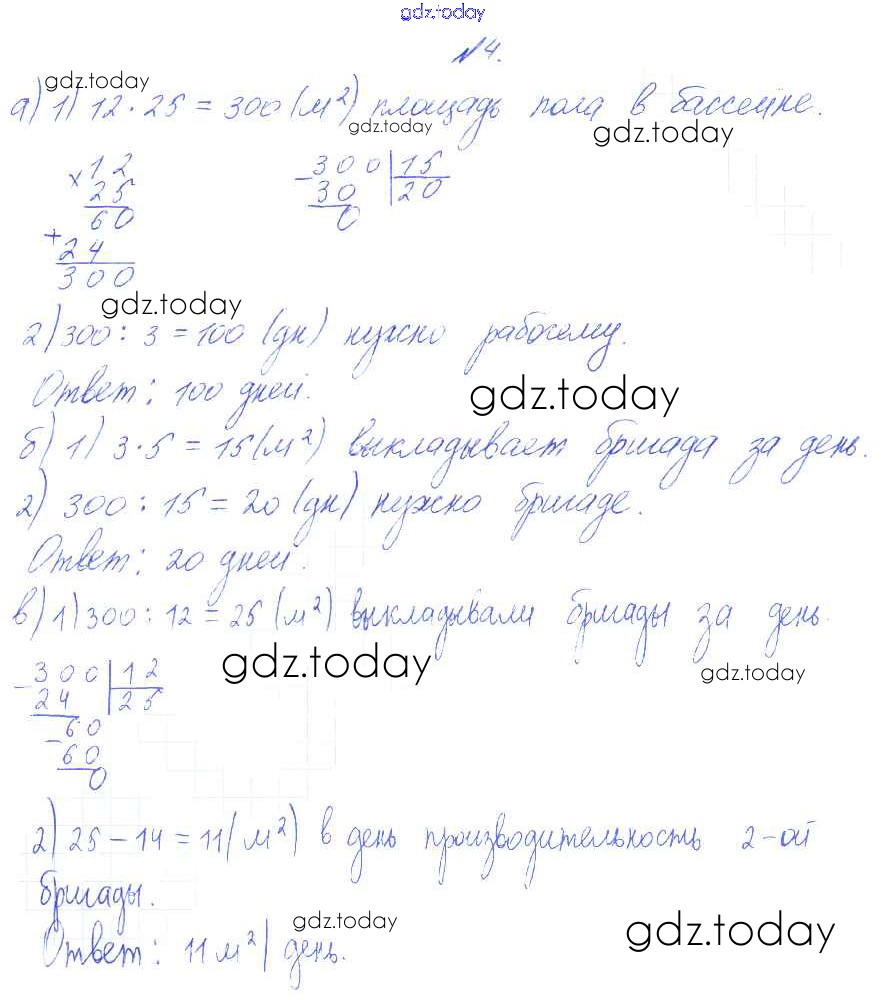 gdz.today
№4.
gdz.today
а) 1) 12 · 25 = 300 (м²) площадь пола в бассейне.
gdz.today gdz.today
× 12 − 300 | 15
25 30 20
60 0
+
24
300
gdz.today
2) 300 : 3 = 100 (дн) нужно рабочему.
Ответ: 100 дней.
gdz.today
б) 1) 3 · 5 = 15 (м²) выкладывает бригада за день.
2) 300 : 15 = 20 (дн) нужно бригаде.
Ответ: 20 дней.
в) 1) 300 : 12 = 25 (м²) выкладывали бригады за день.
gdz.today gdz.today
− 300 | 12
24 25
− 60
60
0
2) 25 − 14 = 11 (м²) в день производительность 2-ой
бригады.
gdz.today gdz.today
Ответ: 11 м² | день.